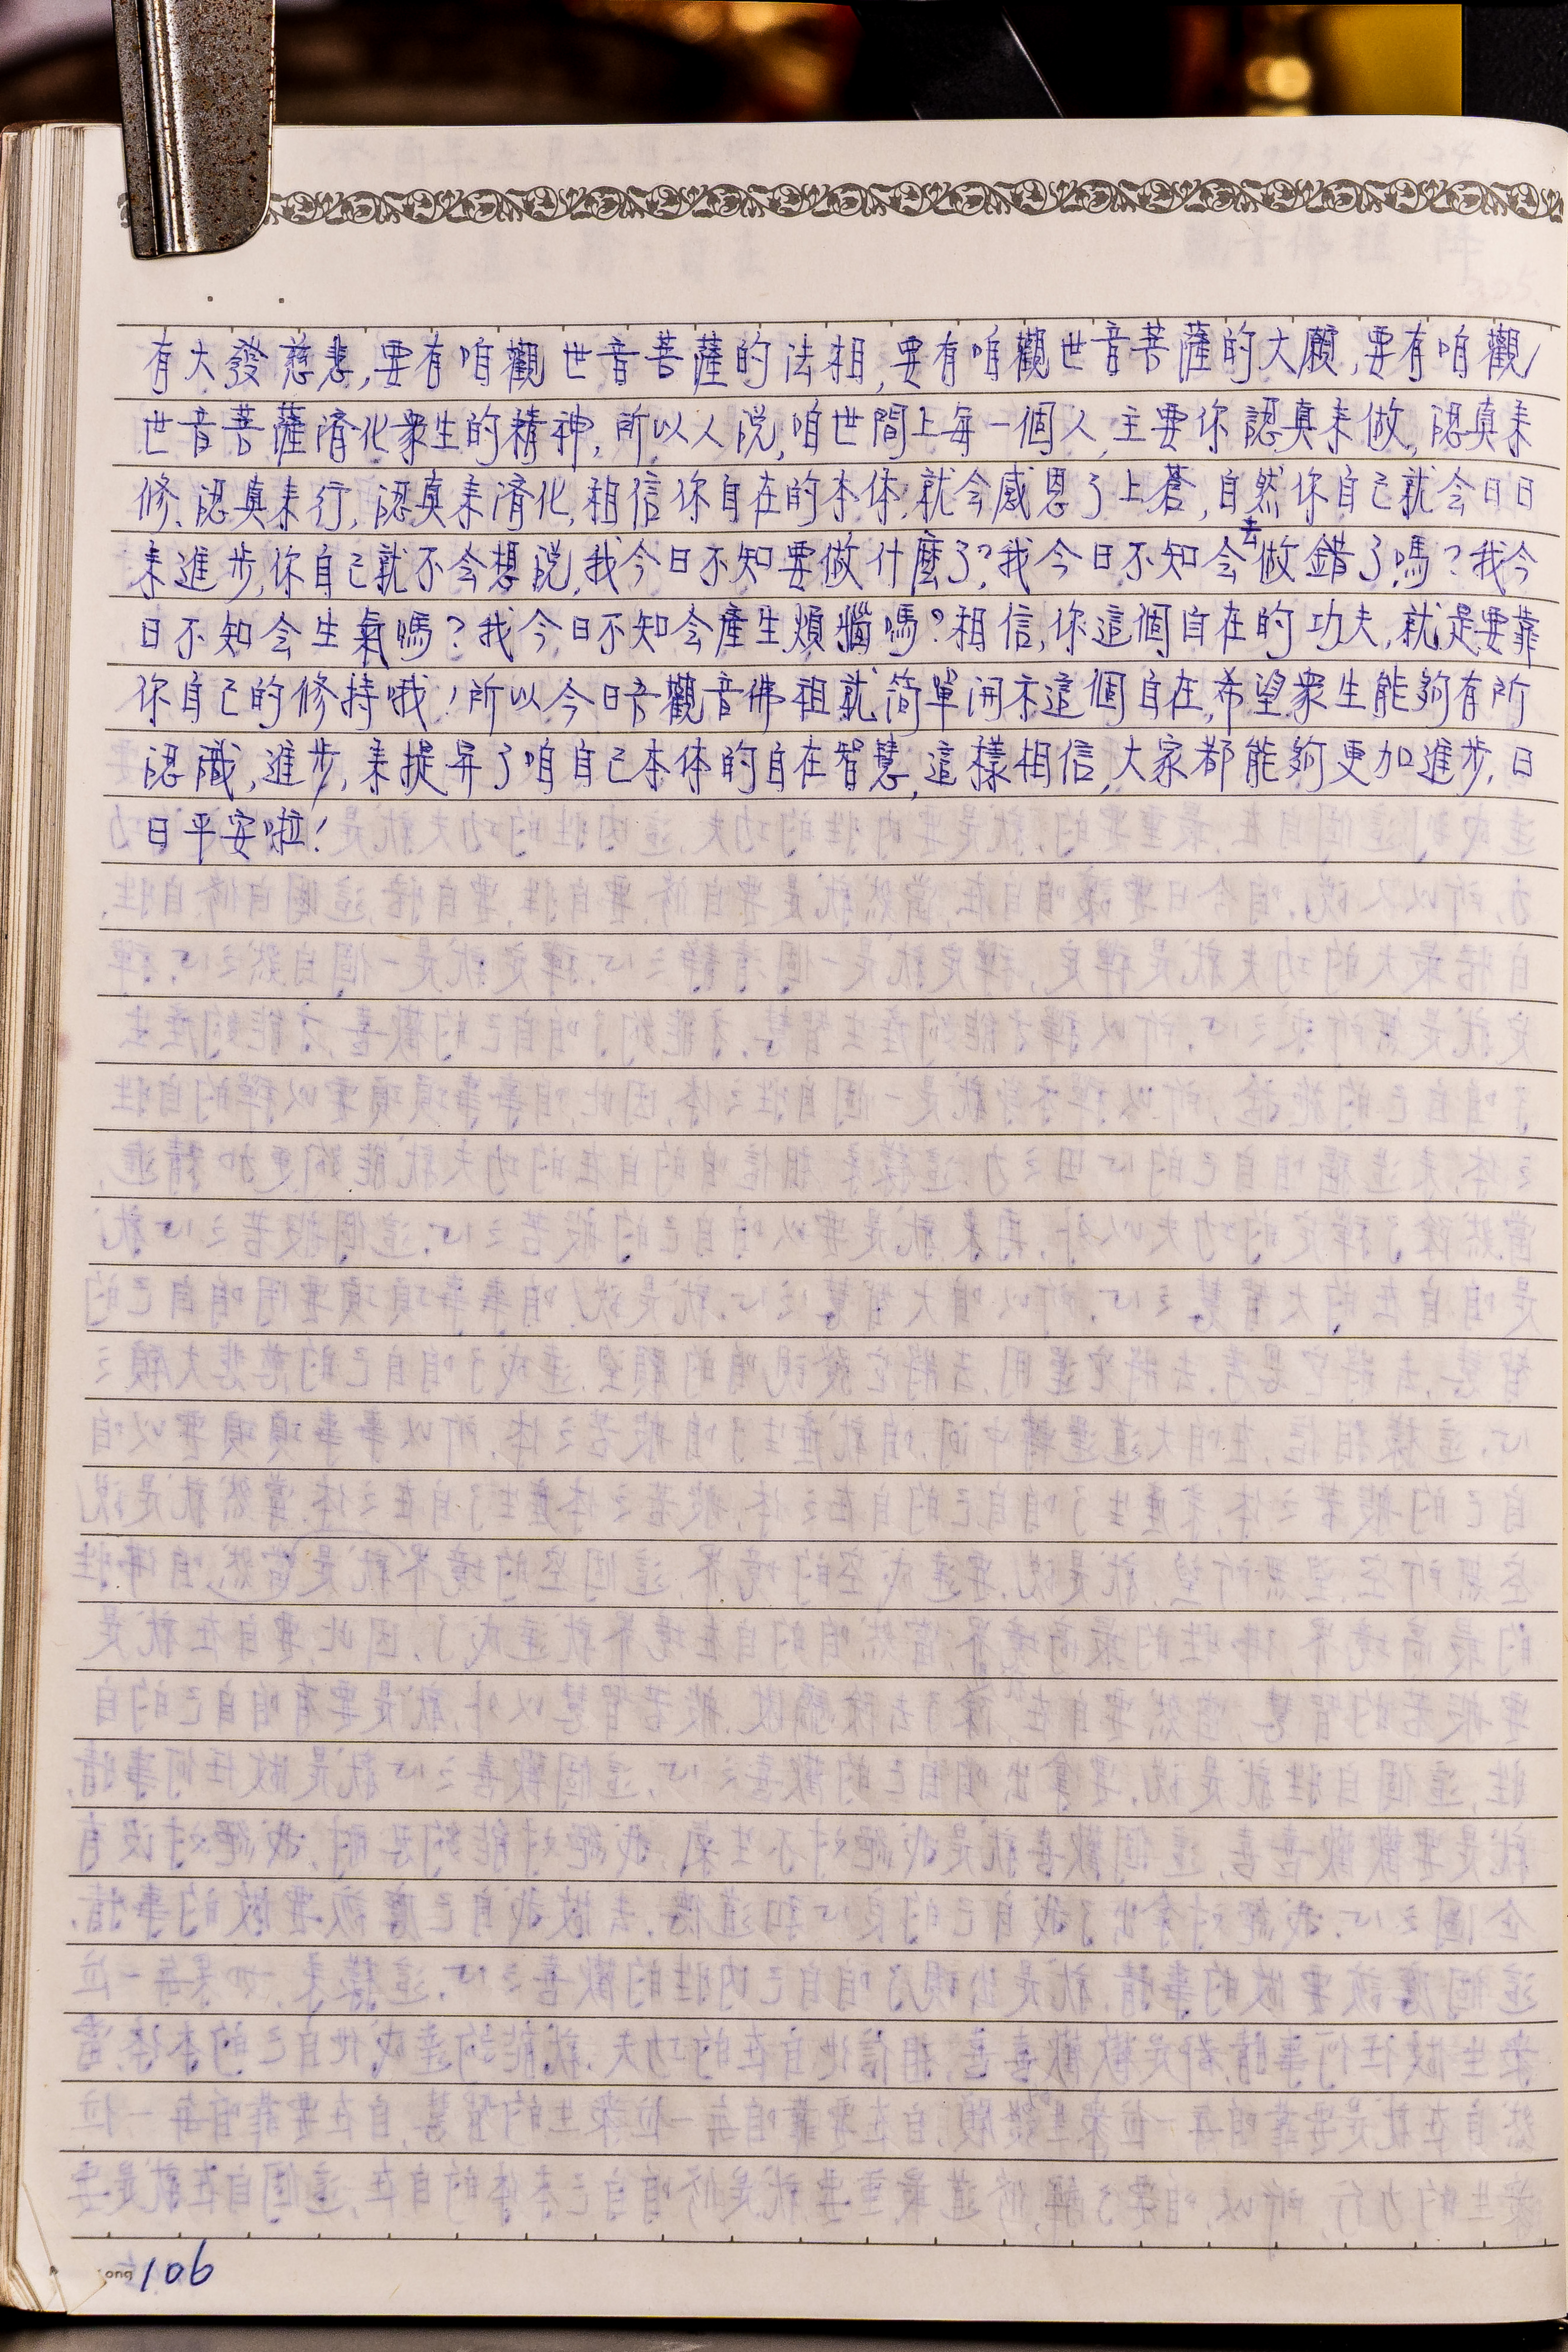 有大發慈悲,要有咱觀世音菩薩的法相,要有咱觀世音菩薩的大願,要有咱觀
世音菩薩濟化衆生的精神,所以人説,咱世間上每一個人,主要你認真来做,認真来
修、認真来行,認真来濟化,相信你自在的本体,就会感恩了上蒼,自然你自己就会日日
来進步,你自己就不会想説,我今日不知要做什麼了?我今日不知会去做錯了嗎?我今
日不知会生氣嗎?我今日不知会產生煩惱嗎?相信,你這個自在的功夫,就是要靠
你自己的修持哦!所以今日音觀音佛祖就简單開示這個自在,希望衆生能夠有所
認識,進步,来提昇了咱自己本体的自在智慧,這樣相信,大家都能夠更加進步,日
日平安啦!
106